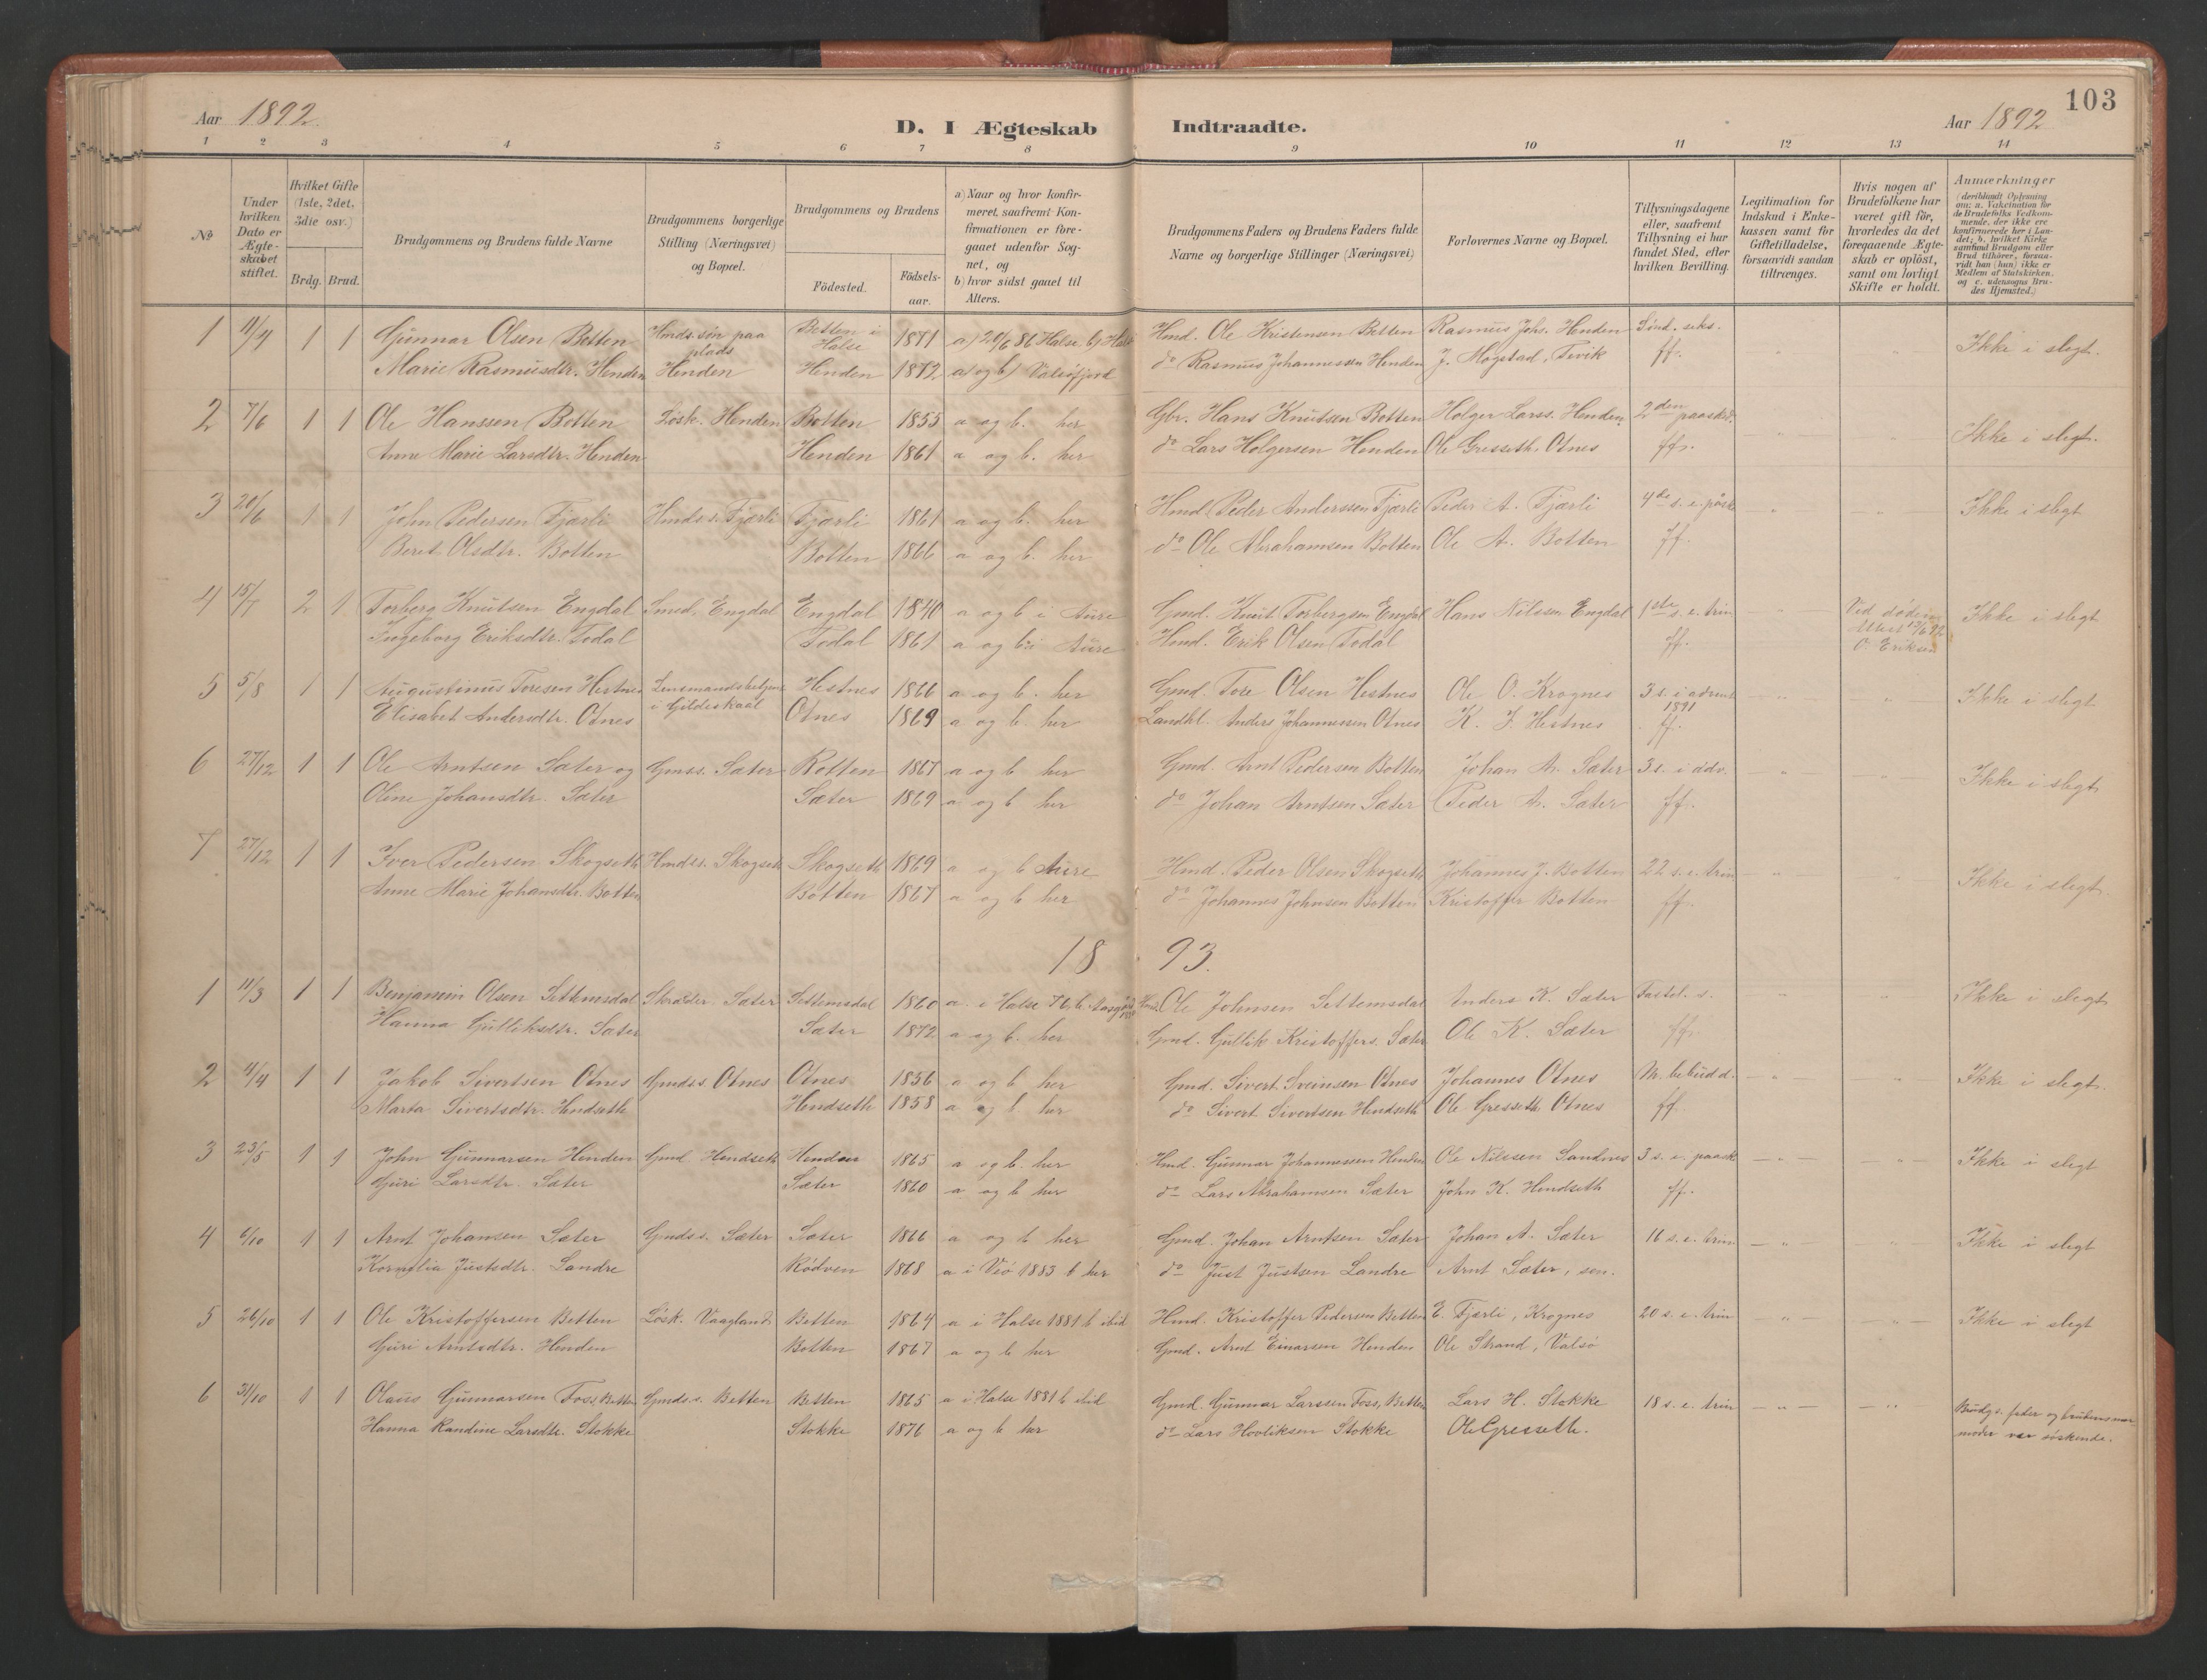 103
Aar 1892.
D. I Ægteskab Indtraadte.
Aar 1892
1 2 3 4 5 6 7 8 9 10 11 12 13 14
No
Under hvilken Dato er Ægteskabet stiftet.
Hvilket Gifte (1ste, 2det, 3die osv.)
Brdg. Brud.
Brudgommens og Brudens fulde Navne
Brudgommens borgerlige Stilling (Næringsvei) og Bopæl.
Brudgommens og Brudens
Födested.
Födselsaar.
a) Naar og hvor konfirmeret, saafremt Konfirmationen er foregaaet udenfor Sognet, og
b) hvor sidst gaaet til Alters.
Brudgommens Faders og Brudens Faders fulde Navne og borgerlige Stillinger (Næringsvei)
Forlovernes Navne og Bopæl.
Tillysningsdagene eller, saafremt Tillysning ei har fundet Sted, efter hvilken Bevilling.
Legitimation for Indskud i Enkekassen samt for Giftetilladelse, forsaavidt saadan tiltrænges.
Hvis nogen af Brudefolkene har været gift för, hvorledes da det foregaaende Ægteskab er oplöst, samt om lovligt Skifte er holdt.
Anmærkninger (deriblandt Oplysning om: a. Vakcination for de Brudefolks Vedkommende, der ikke ere konfirmerede her i Landet; b. hvilket Kirkesamfund Brudgom eller Brud tilhörer, forsaavidt han (hun) ikke er Medlem af Statskirken, og c. udensogns Brudes Hjemsted.)
1 11/4 1 1 Gunnar Olsen Betten Hmds. søn paa plads Betten i Halse 1871 a) 20/6 86 Halse b) Halse Hmd. Ole Kristensen Betten Rasmus Johs. Henden Sønd. seks. Ikke i slegt.
Marie Rasmusdtr. Henden Henden Henden 1872 a) og b) Valsøfjord do Rasmus Johannessen Henden J. Mogstad, Tevik ff.
2 7/6 1 1 Ole Hanssen Botten Løsk. Henden Botten 1855 a og b. her Gbr. Hans Knutsen Botten Holger Larss. Henden 2den paasked. Ikke i slegt.
Anne Marie Larsdtr. Henden Henden 1861 a og b. her do Lars Holgersen Henden Ole Gresseth, Otnes ff.
3 20/6 1 1 John Pedersen Fjærli Hmdss. Fjærli Fjærli 1861 a og b. her Hmd Peder Anderssen Fjærli Peder A. Fjærli 4de s. e. påsk Ikke i slegt
Beret Olsdtr. Botten Botten 1866 a og b. her do Ole Abrahamsen Botten Ole A. Botten ff.
4 15/7 2 1 Torberg Knutsen Engdal Smed, Engdal Engdal 1840 a og b i Aure Gmd. Knut Torbergsen Engdal Hans Nilssen Engdal 1ste s. e. trin Ved døden Ikke i slegt
Ingeborg Eriksdtr. Todal Todal 1861 a og b i Aure Hmd. Erik Olsen Todal ff. O. Eriksen
5 5/8 1 1 Augustinus Toresen Hestnes Lensmandsbetjent i Gildeskaal Hestnes 1866 a og b. her Gmd. Tore Olsen Hestnes Ole O. Krognes 3 s. i advent 1891 Ikke i slegt
Elisabet Andersdtr. Otnes Otnes 1869 a og b. her Landhl. Anders Johannessen Otnes K. J. Hestnes ff.
6 27/12 1 1 Ole Arntsen Sæter og Gmss. Sæter Botten 1867 a og b her Gmd. Arnt Pedersen Botten Johan A. Sæter 3 s. i adv. Ikke i slegt
Oline Johansdtr. Sæter Sæter 1869 a og b her do Johan Arntsen Sæter Peder A. Sæter ff.
7 27/12 1 1 Iver Pedersen Skogseth Hmdss. Skogseth Skogseth 1869 a og b Aure Hmd. Peder Olsen Skogseth Johannes J. Botten 22 s. e. trin Ikke i slegt.
Anne Marie Johansdtr. Botten Botten 1867 a og b her do Johannes Johnsen Botten Kristoffer Botten ff.
1893.
1 11/3 1 1 Benjamin Olsen Settemsdal Skræder. Sæter Settemsdal 1860 a. i Halse 76, b. Hmd. Ole Johnsen Settemsdal Anders K. Sæter Fastel. s. Ikke i slegt
Hanna Gulliksdtr. Sæter Sæter 1872 a og b. her Gmd. Gullik Kristoffers. Sæter Ole K. Sæter ff.
2 4/4 1 1 Jakob Sivertsen Otnes Gmdss Otnes Otnes 1856 a og b her Gmd. Sivert Sveinsen Otnes Johannes Otnes M. bebudd. Ikke i slegt.
Marta Sivertsdtr. Hendseth Hendseth 1858 a og b her do Sivert Sivertsen Hendseth Ole Gresseth Otnes ff.
3 23/5 1 1 John Gunnarsen Henden Gmd Hendseth Henden 1865 a og b. her Hmd. Gunnar Johannessen Henden Ole Nilssen Sandnes 3 s. e. paask Ikke i slegt
Guri Larsdtr. Sæter Sæter 1860 a og b her do Lars Abrahamsen Sæter John K. Hendseth ff.
4 6/10 1 1 Arnt Johansen Sæter Gmdss. Sæter Sæter 1866 a og b her Gmd. Johan Arntsen Sæter Johan A. Sæter 16 s. e. trin Ikke i slegt
Kornelia Justsdtr. Landre Rødven 1868 a i Veø 1883 b her do Just Justsen Landre Arnt Sæter, sen.
5 26/10 1 1 Ole Kristoffersen Betten Løsk. Vaagland Betten 1864 a i Halse 1881 b ibid Hmd. Kristoffer Pedersen Betten E. Fjærli, Krognes 20 s. e. trin Ikke i slegt
Guri Arntsdtr. Henden Botten 1867 a og b her Gmd. Arnt Einarsen Henden Ole Strand, Valsø
6 31/10 1 1 Olaus Gunnarsen Foss, Betten Gmds.s. Betten Betten 1865 a i Halse 1881 b ibid Gmd. Gunnar Larssen Foss, Betten Lars H. Stokke 18 s. e. trin Brudgs. fader og brudens mormoder var søskende.
Hanna Randine Larsdtr. Stokke Stokke 1876 a og b her do Lars Stokke Ole Gresseth.